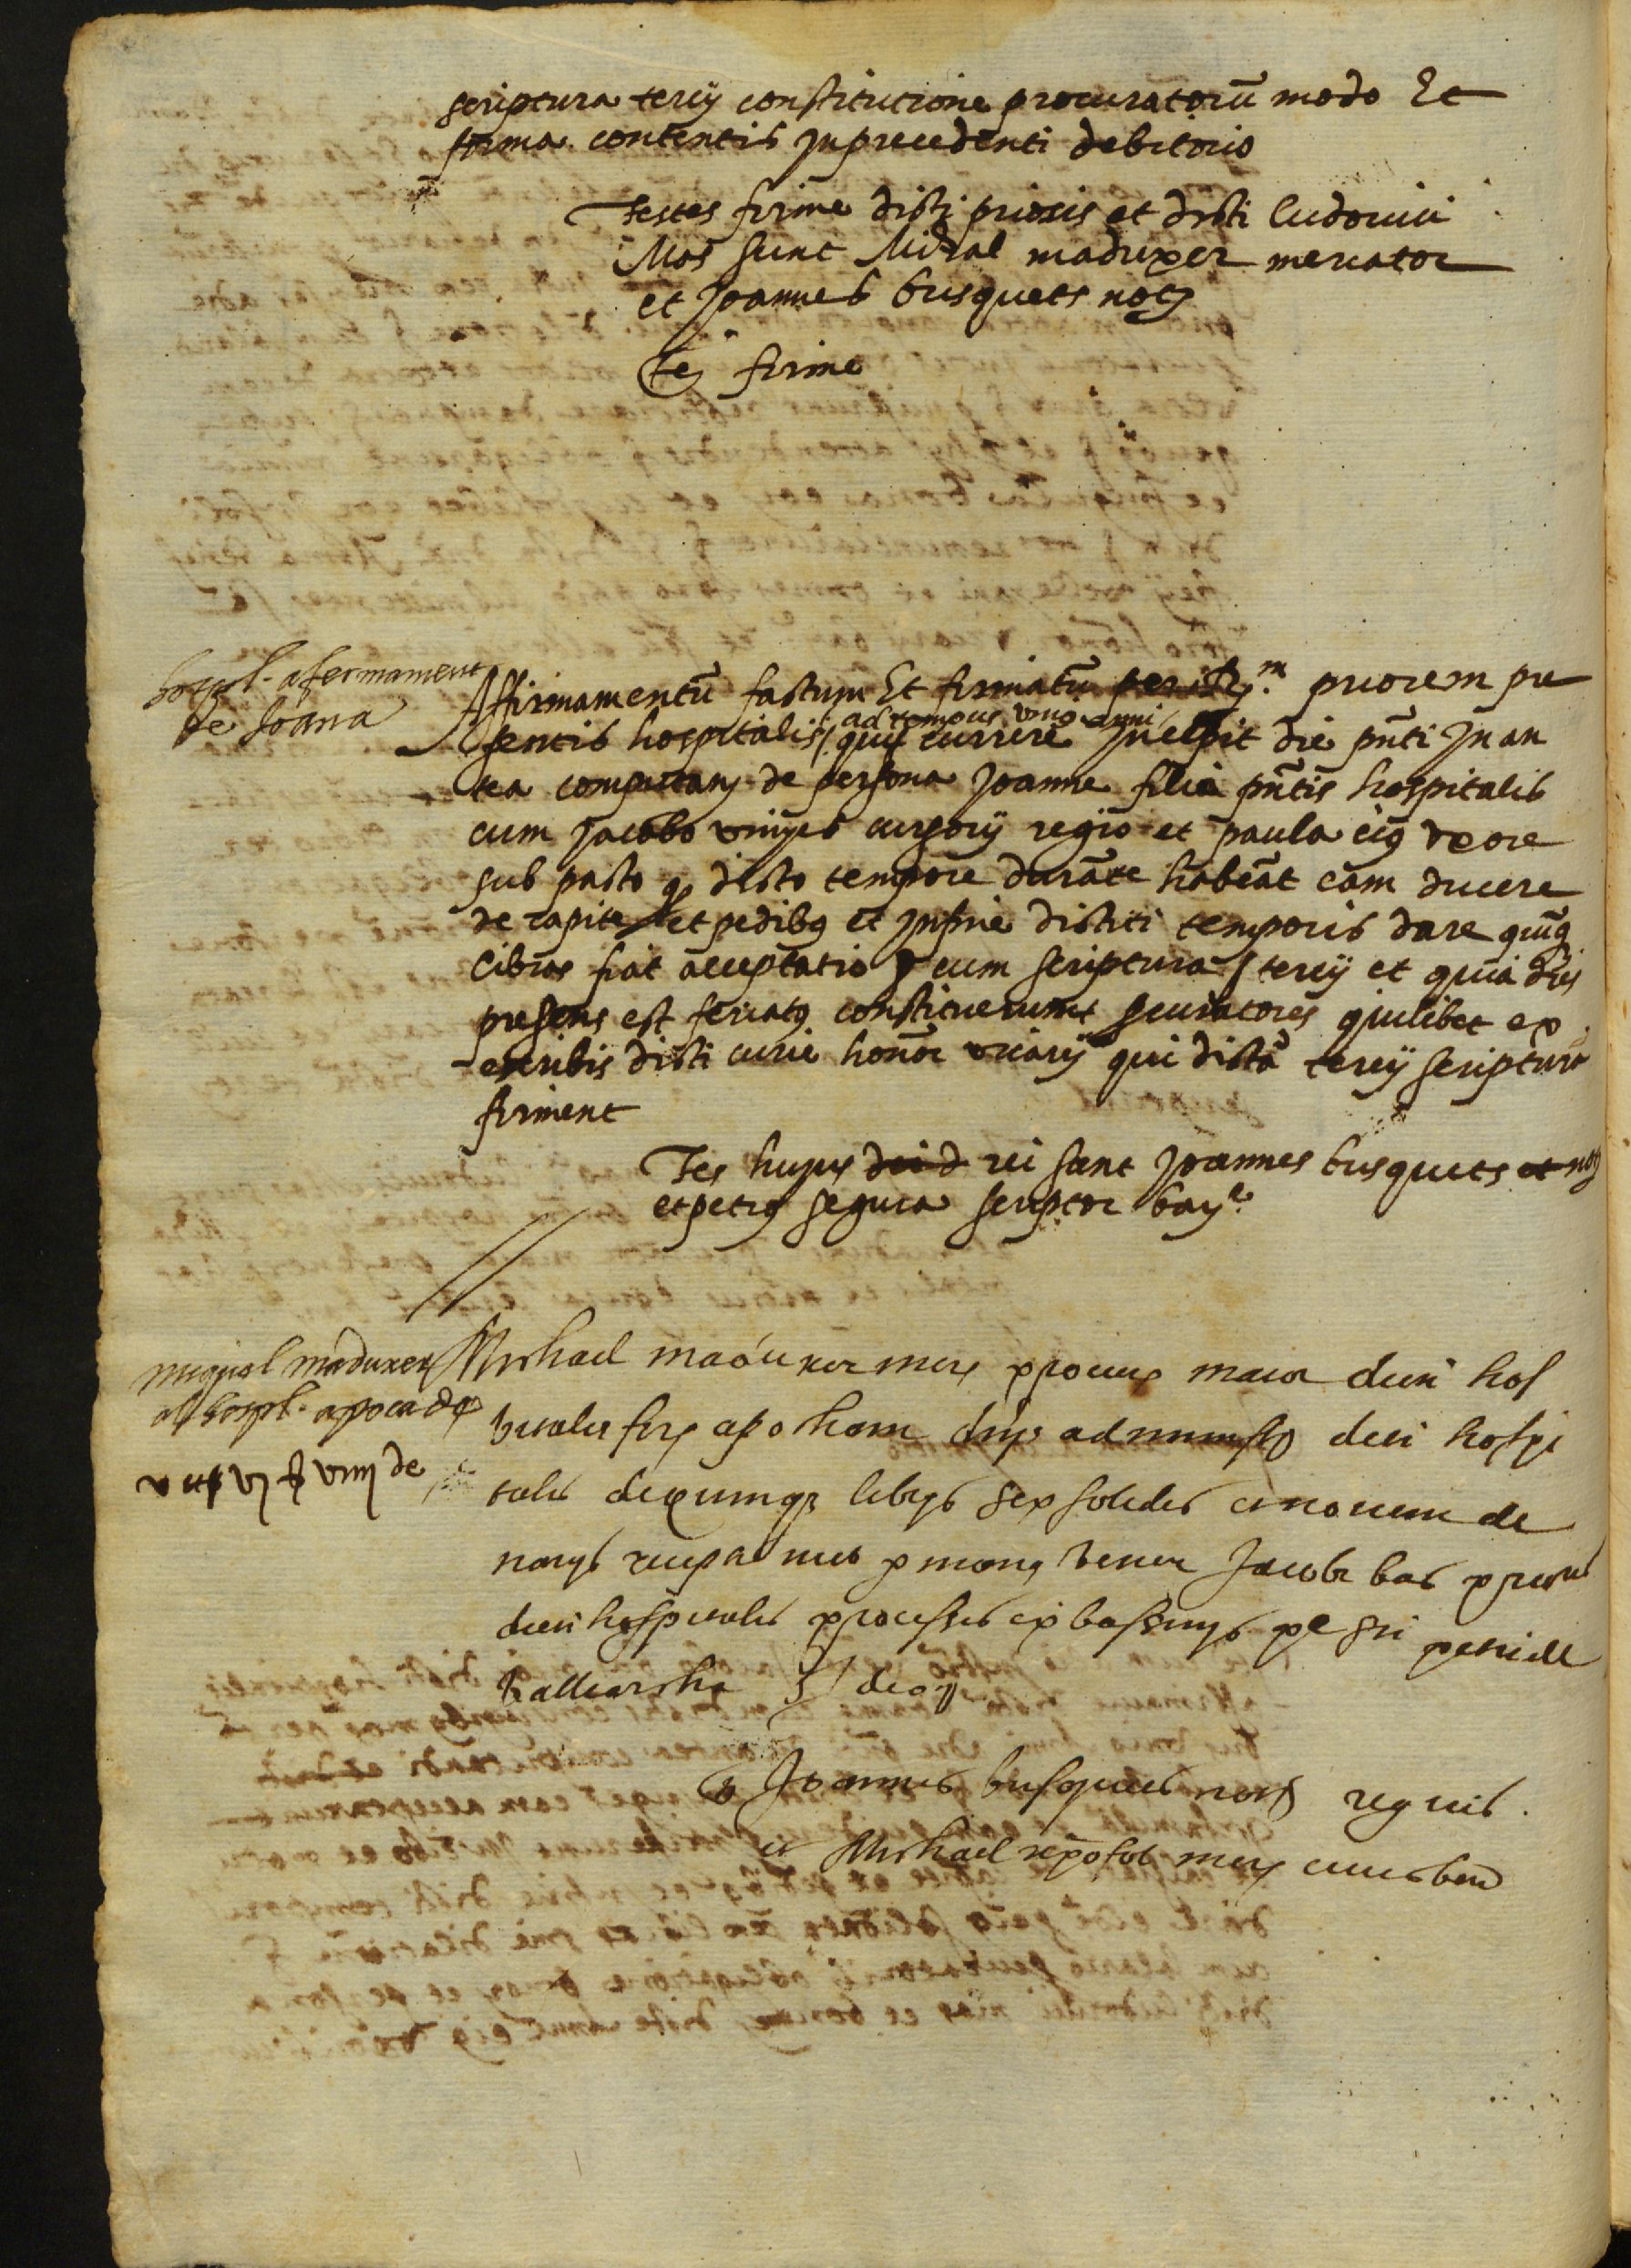 scriptura tercÿ constitutione procuratorũ modo Et
forma contentis in precedenti debitorio
Testes firme dicti prioris et dicti ludovici
Mas sunt Michael maduxer mercator
et Joannes busquets notҙ
Teҙ firme
hospl. afermament
de Joana
Affirmamentũ factum Et firmatũ per R.m priorem pre
ad tempus unius anni
sentis hospitalis quod currere incepit die pñti in an
tea computanҙ de persona Joanne filia pñtis hospitalis
cum Jacobo vinyes cursorÿ regio et paula eiꝰ vxore
sub pacto q dicto tempore durãte habeãt eam ducere
de capite et pedibꝰ et in fine dicti temporis dare quinqꝫ
libras fiat acceptatio cum scriptura tercÿ et quia dies
presens est feriatꝰ constituerunt procuratores quilibet ex
scribis dicti curie honor vicarÿ qui dictã tercÿ scripturã
firment
Tes hujus rei sunt Joannes busquets notҙ
et petrꝰ segura scriptor bar.e
//
miquel maduxer
al hospl. apoca de
v ll vj s viiij de
Michael maduxer merҙ procur maior dicti hos
pitalis firҙ apocham dñis administr dicti hospi
talis de quinqꝫ libris sex solidis et novem de
narÿs receptis per manꝰ vener Jacobi bas prioris
dicti hospitalis processis ex bassinis
dec
T Joannes busquets notҙ regius
et Michael ripofol merҙ cives barñ